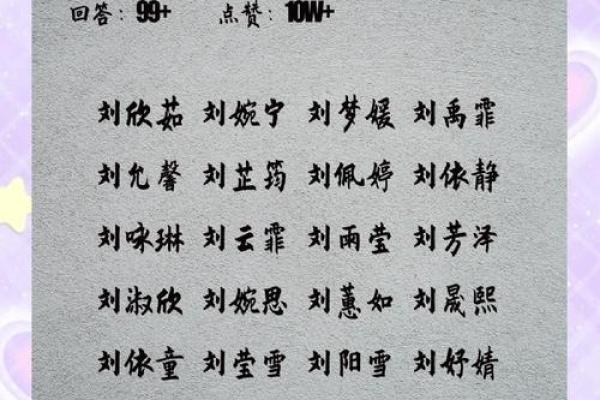 回答：99+ 点赞：10W+
刘欣茹 刘婉宁 刘梦媛 刘禹霏
刘允馨 刘芷筠 刘佩婷 刘依静
刘咏琳 刘云霏 刘雨莹 刘芳泽
刘淑欣 刘婉思 刘蕙如 刘晟熙
刘依童 刘莹雪 刘阳雪 刘妤婧